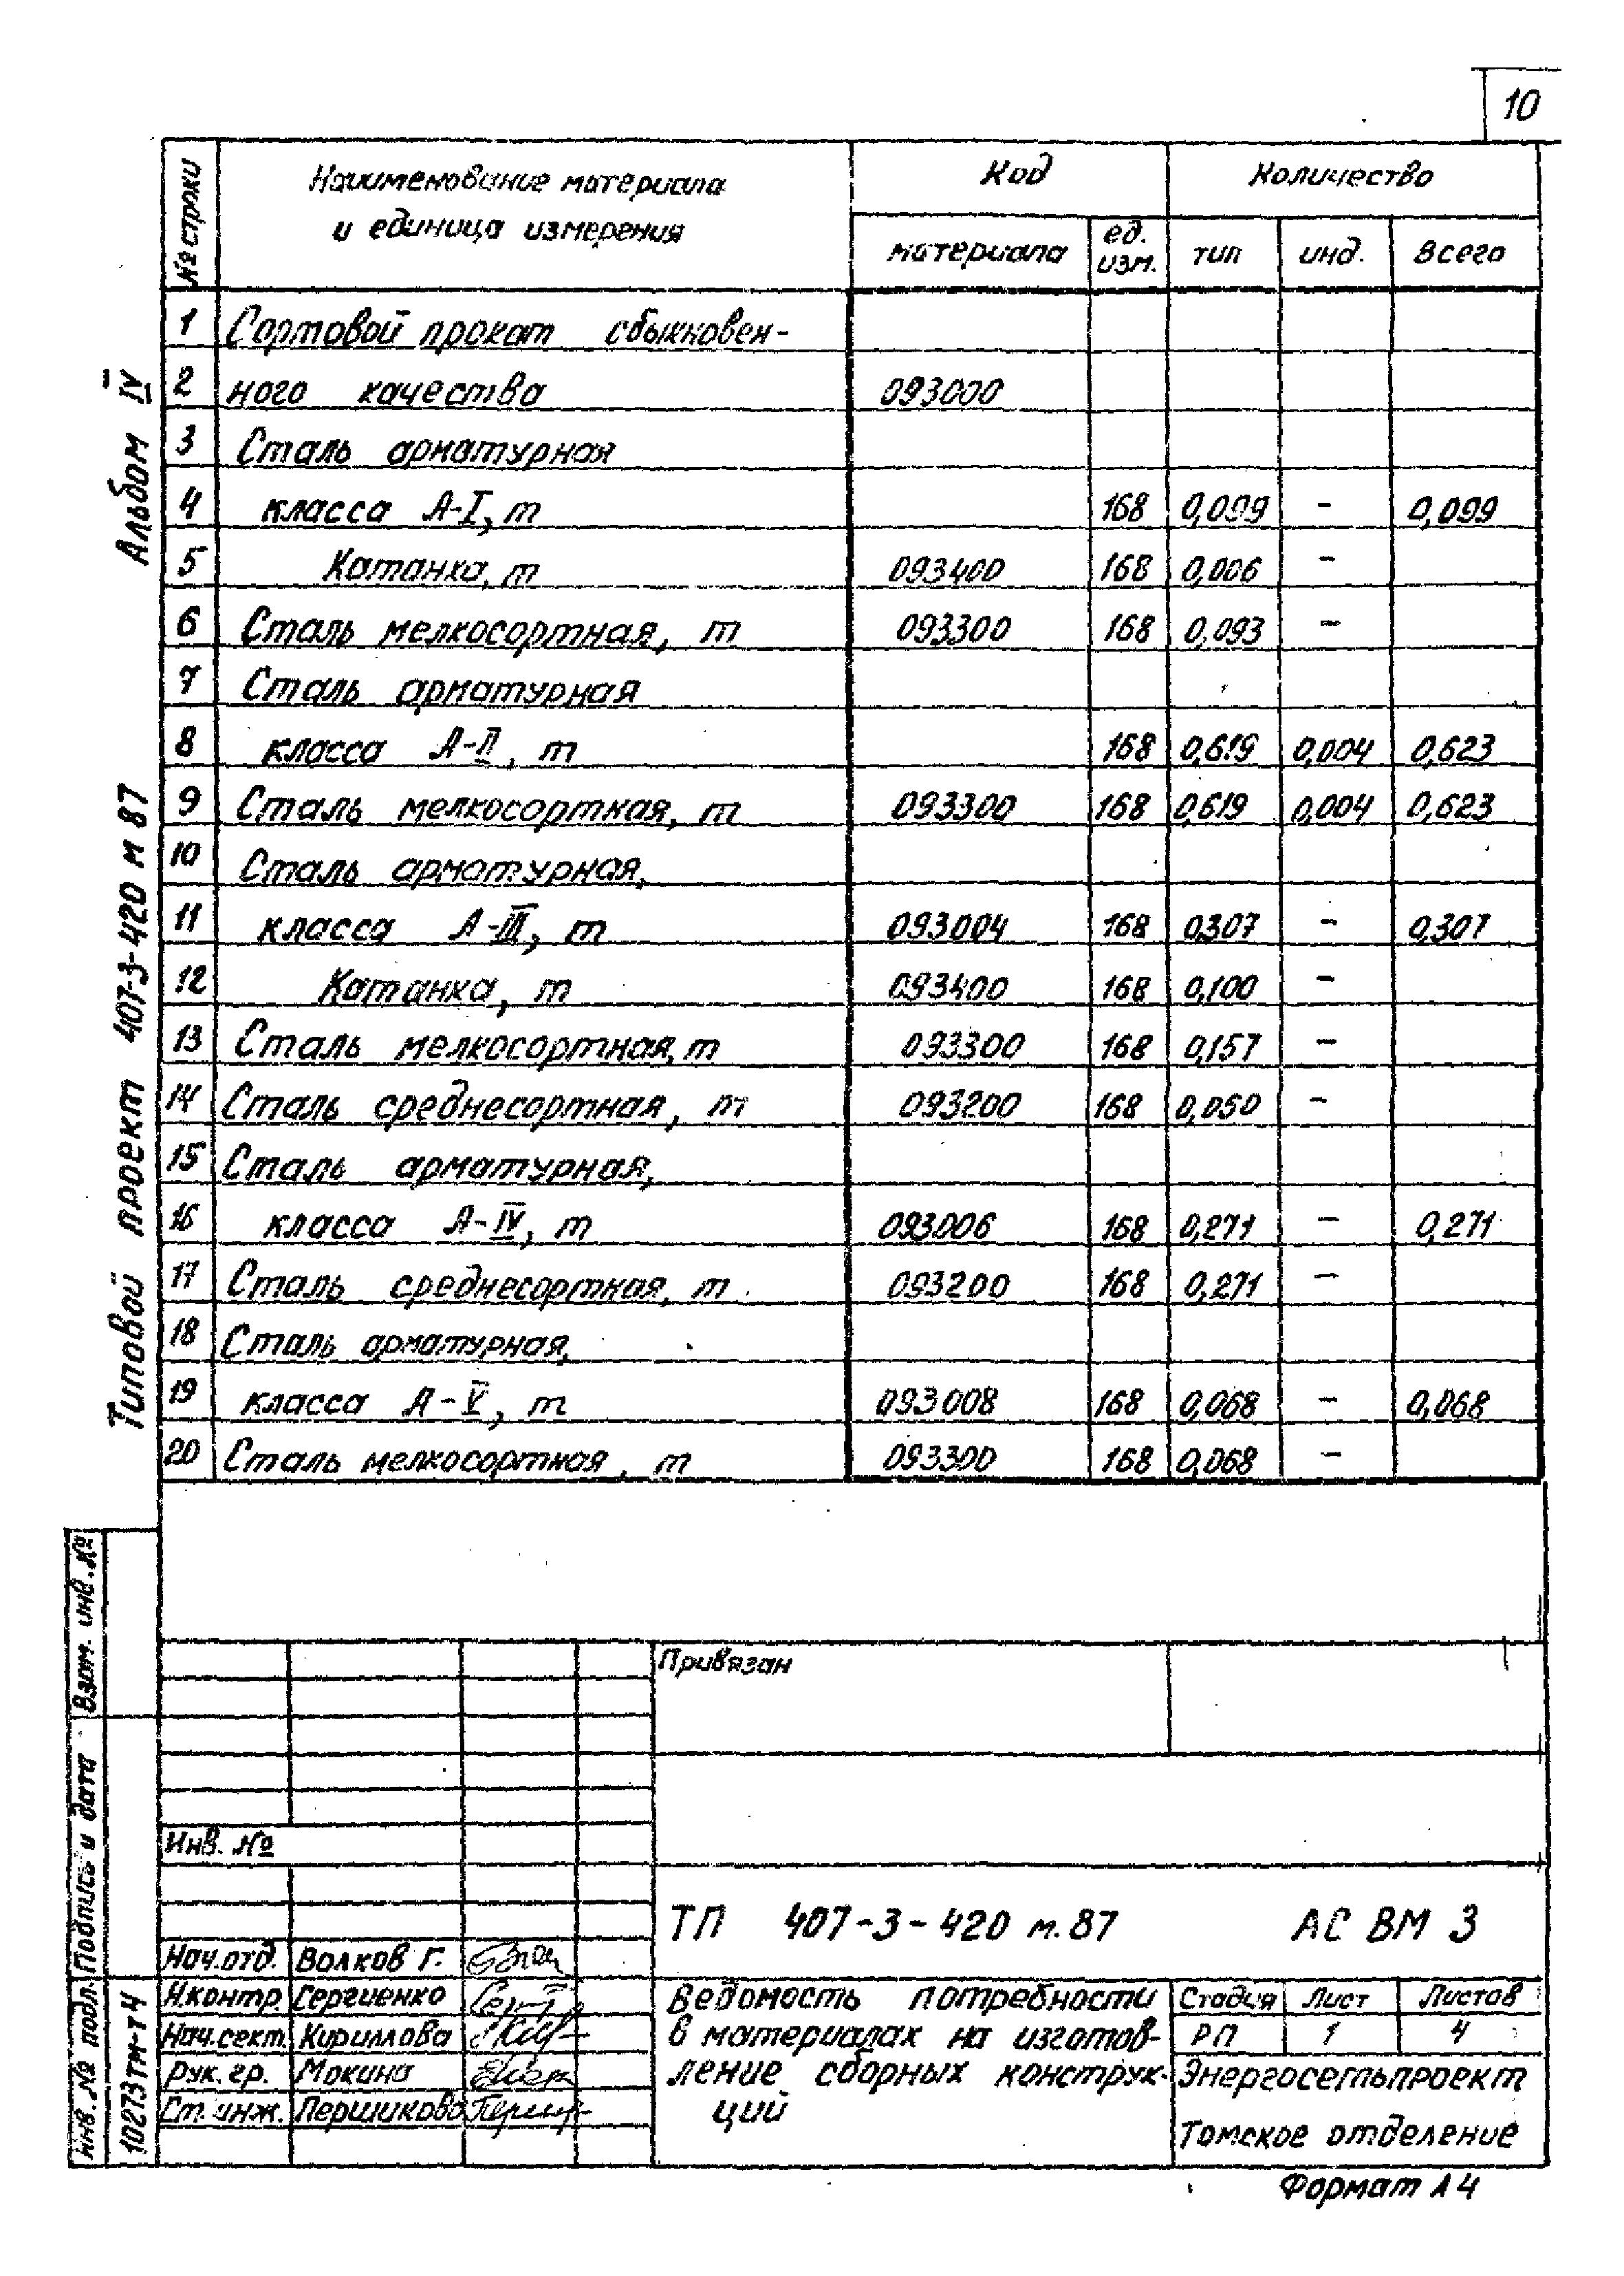 10
№ строки
Наименование материала
и единица измерения
Код
Количество
материала
ед.
изм.
тип
инд.
всего
1 Сортовой прокат обыкновен-
2 ного качества 093000
3 Сталь арматурная
4 класса А-I, т 168 0,099 - 0,099
5 Катанка, т 093400 168 0,006 -
6 Сталь мелкосортная, т 093300 168 0,093 -
7 Сталь арматурная
8 класса А-II, т 168 0,619 0,004 0,623
9 Сталь мелкосортная, т 093300 168 0,619 0,004 0,623
10 Сталь арматурная,
11 класса А-III, т 093004 168 0,307 - 0,307
12 Катанка, т 093400 168 0,100 -
13 Сталь мелкосортная, т 093300 168 0,157 -
14 Сталь среднесортная, т 093200 168 0,050 -
15 Сталь арматурная,
16 класса А-IV, т 093006 168 0,271 - 0,271
17 Сталь среднесортная, т 093200 168 0,271 -
18 Сталь арматурная,
19 класса А-V, т 093008 168 0,068 - 0,068
20 Сталь мелкосортная, т 093300 168 0,068 -
Типовой проект 407-3-420 м 87 Альбом IV
Взам. инв. №
Подпись и дата
Инв. № подл.
10273тм-т4
Привязан
Инв. №
ТП 407-3-420 м.87 АС ВМ 3
Нач.отд. Волков Г.
Н.контр Сергиенко
Нач.сект. Кириллова
Рук. гр. Мокина
Ст. инж. Першикова
Ведомость потребности
в материалах на изготов-
ление сборных конструк-
ций
Стадия Лист Листов
РП 1 4
Энергосетьпроект
Томское отделение
Формат А4